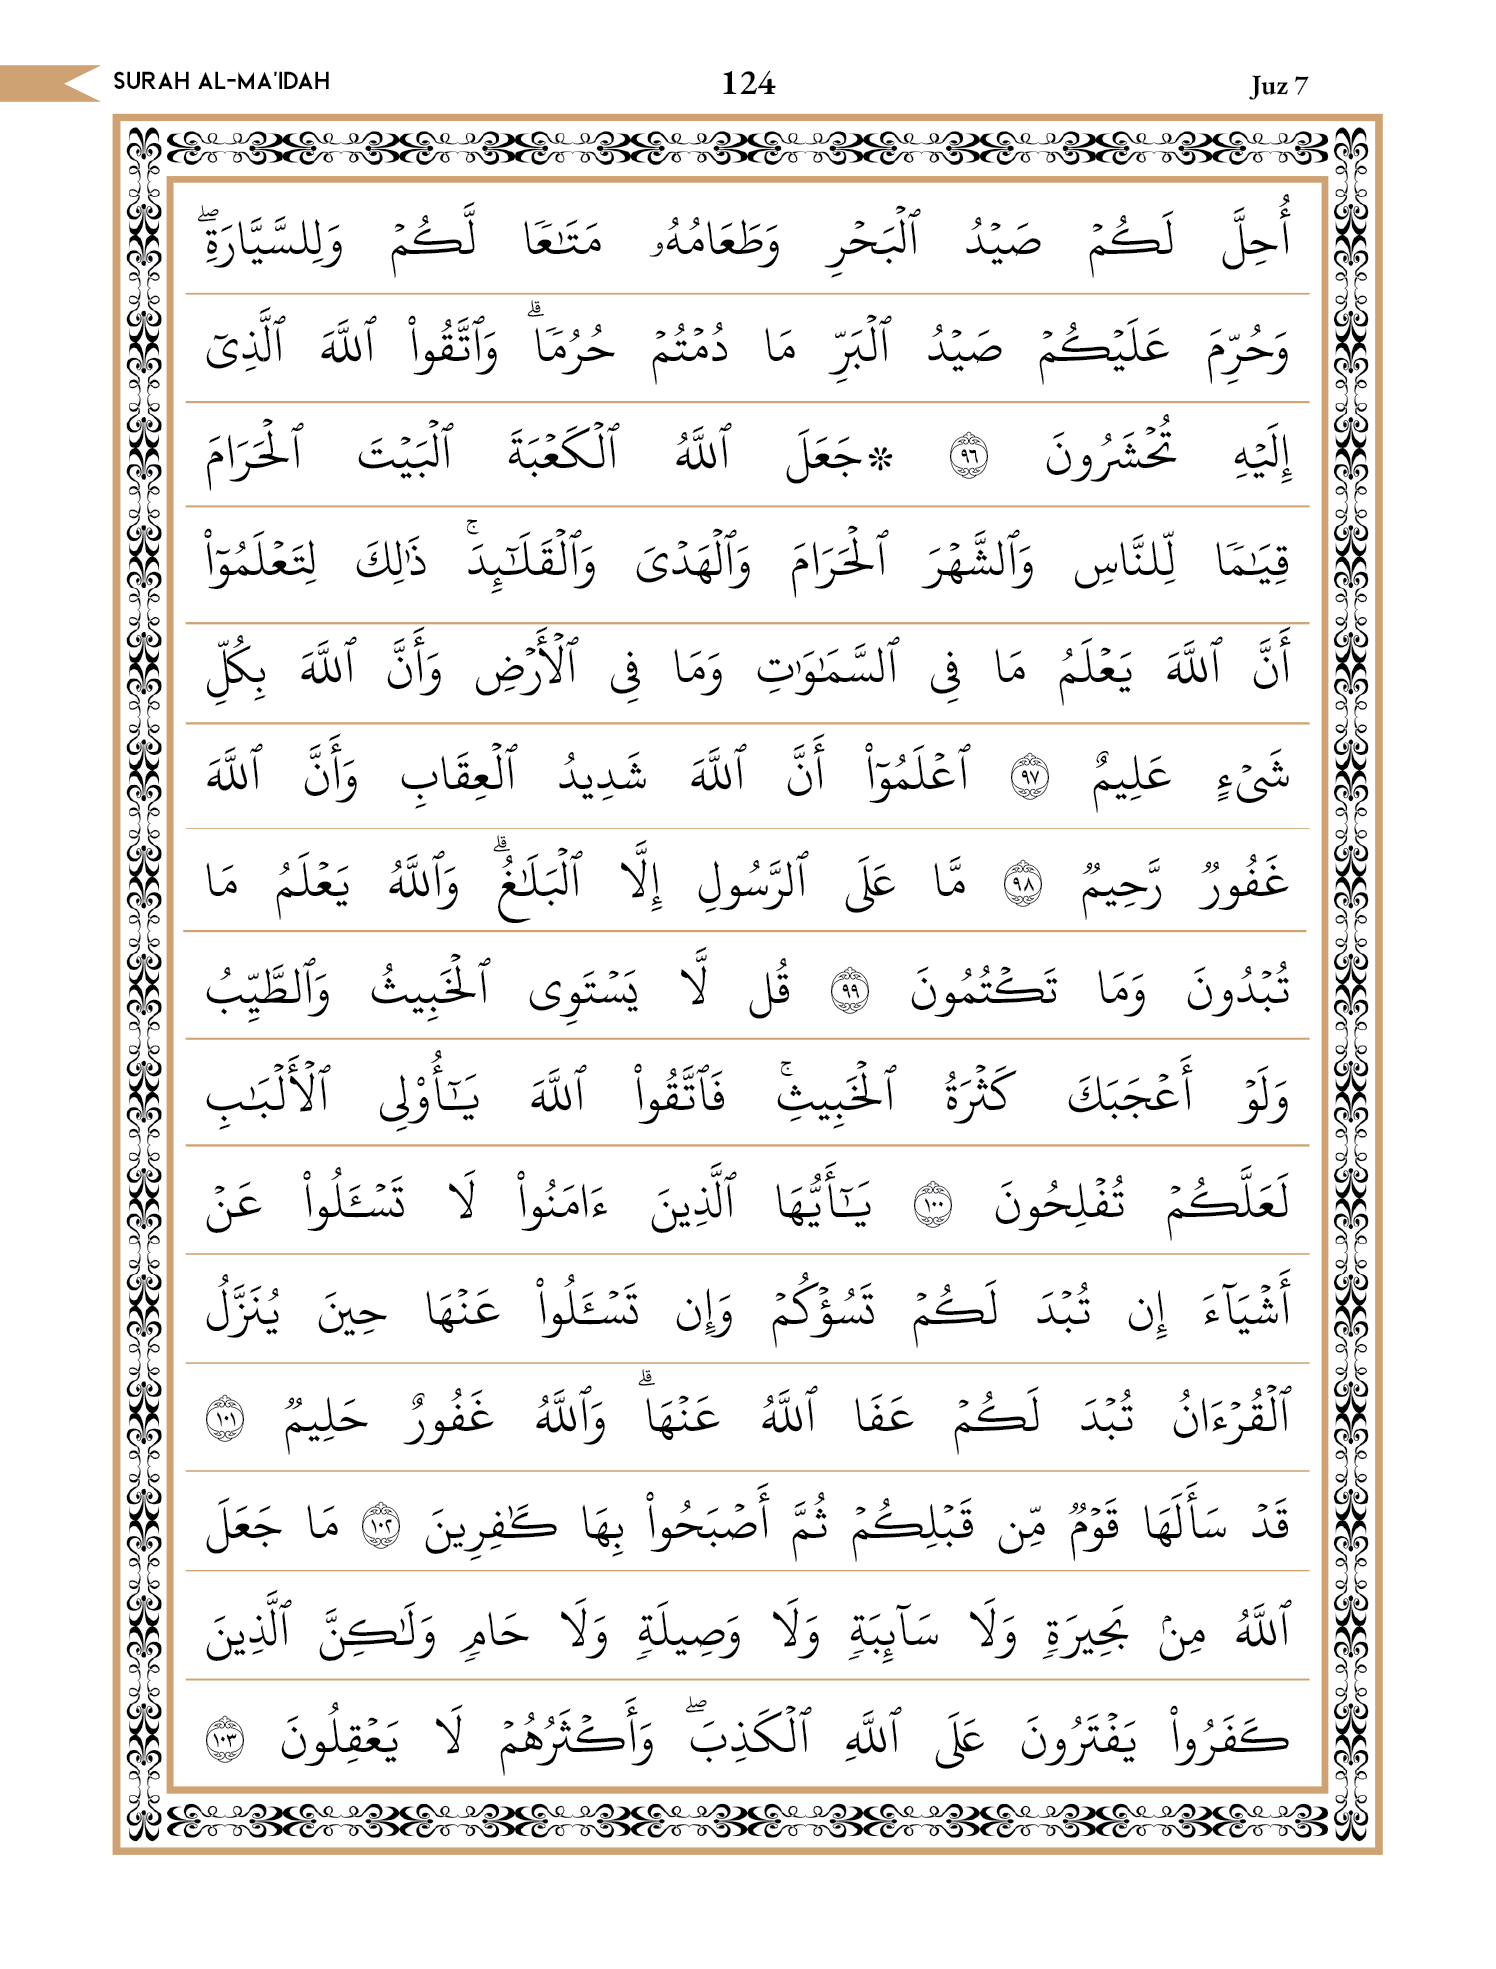 SURAH AL-MA'IDAH 124 Juz 7
أُحِلَّ لَكُمۡ صَيۡدُ ٱلۡبَحۡرِ وَطَعَامُهُۥ مَتَٰعٗا لَّكُمۡ وَلِلسَّيَّارَةِۖ
وَحُرِّمَ عَلَيۡكُمۡ صَيۡدُ ٱلۡبَرِّ مَا دُمۡتُمۡ حُرُمٗاۗ وَٱتَّقُواْ ٱللَّهَ ٱلَّذِيٓ
إِلَيۡهِ تُحۡشَرُونَ ٩٦ ۞جَعَلَ ٱللَّهُ ٱلۡكَعۡبَةَ ٱلۡبَيۡتَ ٱلۡحَرَامَ
قِيَٰمٗا لِّلنَّاسِ وَٱلشَّهۡرَ ٱلۡحَرَامَ وَٱلۡهَدۡيَ وَٱلۡقَلَٰٓئِدَۚ ذَٰلِكَ لِتَعۡلَمُوٓاْ
أَنَّ ٱللَّهَ يَعۡلَمُ مَا فِي ٱلسَّمَٰوَٰتِ وَمَا فِي ٱلۡأَرۡضِ وَأَنَّ ٱللَّهَ بِكُلِّ
شَيۡءٍ عَلِيمٌ ٩٧ ٱعۡلَمُوٓاْ أَنَّ ٱللَّهَ شَدِيدُ ٱلۡعِقَابِ وَأَنَّ ٱللَّهَ
غَفُورٞ رَّحِيمٞ ٩٨ مَّا عَلَى ٱلرَّسُولِ إِلَّا ٱلۡبَلَٰغُۗ وَٱللَّهُ يَعۡلَمُ مَا
تُبۡدُونَ وَمَا تَكۡتُمُونَ ٩٩ قُل لَّا يَسۡتَوِي ٱلۡخَبِيثُ وَٱلطَّيِّبُ
وَلَوۡ أَعۡجَبَكَ كَثۡرَةُ ٱلۡخَبِيثِۚ فَٱتَّقُواْ ٱللَّهَ يَٰٓأُوْلِي ٱلۡأَلۡبَٰبِ
لَعَلَّكُمۡ تُفۡلِحُونَ ١٠٠ يَٰٓأَيُّهَا ٱلَّذِينَ ءَامَنُواْ لَا تَسۡـَٔلُواْ عَنۡ
أَشۡيَآءَ إِن تُبۡدَ لَكُمۡ تَسُؤۡكُمۡ وَإِن تَسۡـَٔلُواْ عَنۡهَا حِينَ يُنَزَّلُ
ٱلۡقُرۡءَانُ تُبۡدَ لَكُمۡ عَفَا ٱللَّهُ عَنۡهَاۗ وَٱللَّهُ غَفُورٌ حَلِيمٞ ١٠١
قَدۡ سَأَلَهَا قَوۡمٞ مِّن قَبۡلِكُمۡ ثُمَّ أَصۡبَحُواْ بِهَا كَٰفِرِينَ ١٠٢ مَا جَعَلَ
ٱللَّهُ مِنۢ بَحِيرَةٖ وَلَا سَآئِبَةٖ وَلَا وَصِيلَةٖ وَلَا حَامٖ وَلَٰكِنَّ ٱلَّذِينَ
كَفَرُواْ يَفۡتَرُونَ عَلَى ٱللَّهِ ٱلۡكَذِبَۖ وَأَكۡثَرُهُمۡ لَا يَعۡقِلُونَ ١٠٣